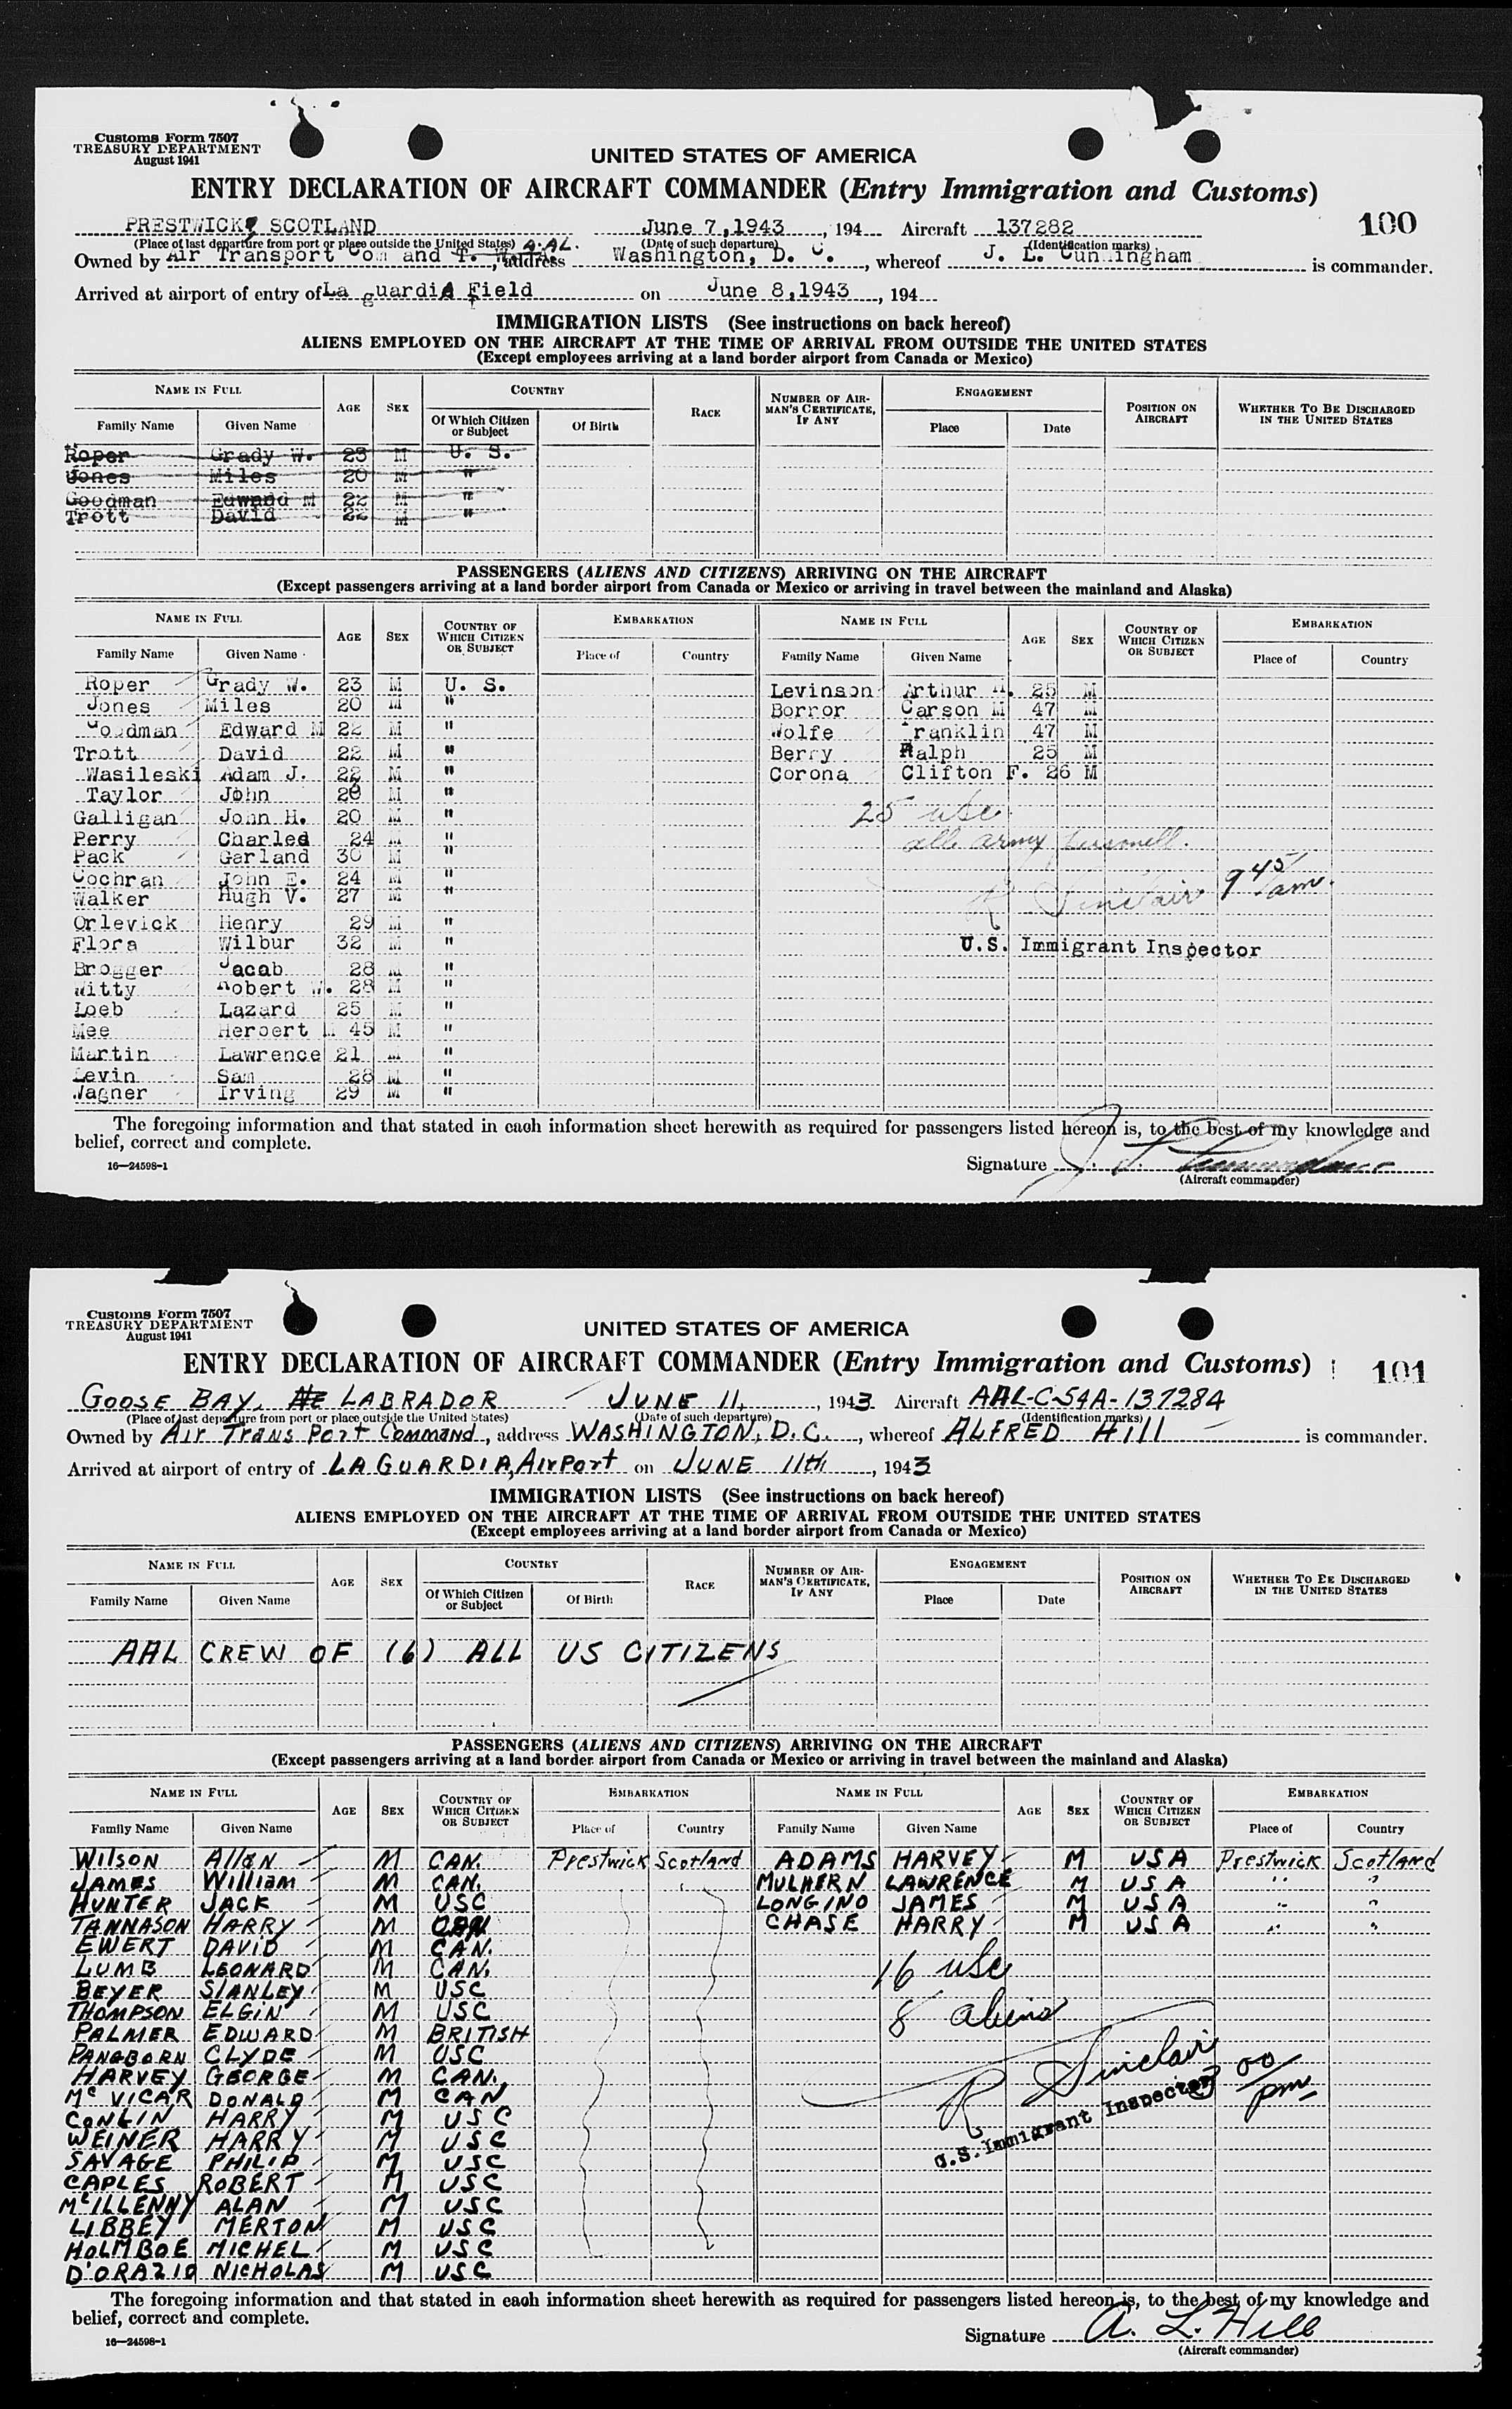 Customs Form 7507
TREASURY DEPARTMENT
August 1941
UNITED STATES OF AMERICA
ENTRY DECLARATION OF AIRCRAFT COMMANDER (Entry Immigration and Customs)
100
PRESTWICK, SCOTLAND June 7,1943, 194 Aircraft 137282
(Place of last departure from port or place outside the United States) (Date of such departure) (Identification marks)
A.AL.
Owned by Air Transport Com and T. W. A., address Washington, D. C., whereof J. L. Cunningham is commander.
Arrived at airport of entry of La guardiA Field on June 8,1943, 194
IMMIGRATION LISTS (See instructions on back hereof)
ALIENS EMPLOYED ON THE AIRCRAFT AT THE TIME OF ARRIVAL FROM OUTSIDE THE UNITED STATES
(Except employees arriving at a land border airport from Canada or Mexico)
NAME IN FULL AGE SEX COUNTRY RACE NUMBER OF AIRMAN'S CERTIFICATE, IF ANY ENGAGEMENT POSITION ON AIRCRAFT WHETHER TO BE DISCHARGED IN THE UNITED STATES
Family Name Given Name Of Which Citizen or Subject Of Birth Place Date
Roper Grady W. 23 M U. S.
Jones Miles 20 M "
Goodman Edward M 22 M "
Trott David 22 M "
PASSENGERS (ALIENS AND CITIZENS) ARRIVING ON THE AIRCRAFT
(Except passengers arriving at a land border airport from Canada or Mexico or arriving in travel between the mainland and Alaska)
NAME IN FULL AGE SEX COUNTRY OF WHICH CITIZEN OR SUBJECT EMBARKATION NAME IN FULL AGE SEX COUNTRY OF WHICH CITIZEN OR SUBJECT EMBARKATION
Family Name Given Name Place of Country Family Name Given Name Place of Country
Roper Grady W. 23 M U. S. Levinson Arthur 25 M
Jones Miles 20 M " Borror Carson M 47 M
Goodman Edward M 22 M " Wolfe Franklin 47 M
Trott David 22 M " Berry Ralph 25 M
Wasileski Adam J. 22 M " Corona Clifton F. 26 M
Taylor John 20 M "
Galligan John H. 20 M " 25 usc
Perry Charles 24 M " all army personnell.
Pack Garland 30 M "
Cochran John E. 24 M " 9 45/am.
Walker Hugh V. 27 M " R Sinclair
Orlevick Henry 29 M "
Flora Wilbur 32 M " U.S. Immigrant Inspector
Brogger Jacab 28 M "
Witty Robert W. 28 M "
Loeb Lazard 25 M "
Mee Herbert 45 M "
Martin Lawrence 21 M "
Levin Sam 28 M "
Wagner Irving 29 M "
The foregoing information and that stated in each information sheet herewith as required for passengers listed hereon is, to the best of my knowledge and
belief, correct and complete.
16—24598-1
Signature J. L. Cunningham
(Aircraft commander)
Customs Form 7507
TREASURY DEPARTMENT
August 1941
UNITED STATES OF AMERICA
ENTRY DECLARATION OF AIRCRAFT COMMANDER (Entry Immigration and Customs)
101
GOOSE BAY, LABRADOR JUNE 11, 1943 Aircraft AAL-C-54A-137284
(Place of last departure from port or place outside the United States) (Date of such departure) (Identification marks)
Owned by Air Transport Command, address WASHINGTON, D.C., whereof ALFRED Hill is commander.
Arrived at airport of entry of LA GUARDIA, Airport on JUNE 11th, 1943
IMMIGRATION LISTS (See instructions on back hereof)
ALIENS EMPLOYED ON THE AIRCRAFT AT THE TIME OF ARRIVAL FROM OUTSIDE THE UNITED STATES
(Except employees arriving at a land border airport from Canada or Mexico)
NAME IN FULL AGE SEX COUNTRY RACE NUMBER OF AIRMAN'S CERTIFICATE, IF ANY ENGAGEMENT POSITION ON AIRCRAFT WHETHER TO BE DISCHARGED IN THE UNITED STATES
Family Name Given Name Of Which Citizen or Subject Of Birth Place Date
AAL CREW OF (6) ALL US CITIZENS
PASSENGERS (ALIENS AND CITIZENS) ARRIVING ON THE AIRCRAFT
(Except passengers arriving at a land border airport from Canada or Mexico or arriving in travel between the mainland and Alaska)
NAME IN FULL AGE SEX COUNTRY OF WHICH CITIZEN OR SUBJECT EMBARKATION NAME IN FULL AGE SEX COUNTRY OF WHICH CITIZEN OR SUBJECT EMBARKATION
Family Name Given Name Place of Country Family Name Given Name Place of Country
WILSON Allan M CAN. Prestwick Scotland ADAMS HARVEY M USA Prestwick Scotland
JAMES William M CAN. MULHERN LAWRENCE M USA " "
HUNTER JACK M USC LONGINO JAMES M USA " "
TANNASON HARRY M CAN CHASE HARRY M USA " "
EWERT DAVID M CAN.
LUMB LEONARD M CAN. 16 usc
BEYER STANLEY M USC
THOMPSON ELGIN M USC 8 aliens
PALMER EDWARD M BRITISH
PANGBORN CLYDE M USC R Sinclair
HARVEY GEORGE M CAN. 00/pm
McVICAR DONALD M CAN U.S. Immigrant Inspector
CONLIN HARRY M USC
WEINER HARRY M USC
SAVAGE PHILIP M USC
CAPLES ROBERT M USC
McILLENNY ALAN M USC
LIBBEY MERTON M USC
HOLMBOE MICHEL M USC
D'ORAZIO NICHOLAS M USC
The foregoing information and that stated in each information sheet herewith as required for passengers listed hereon is, to the best of my knowledge and
belief, correct and complete.
16—24598-1
Signature A. L. Hill
(Aircraft commander)